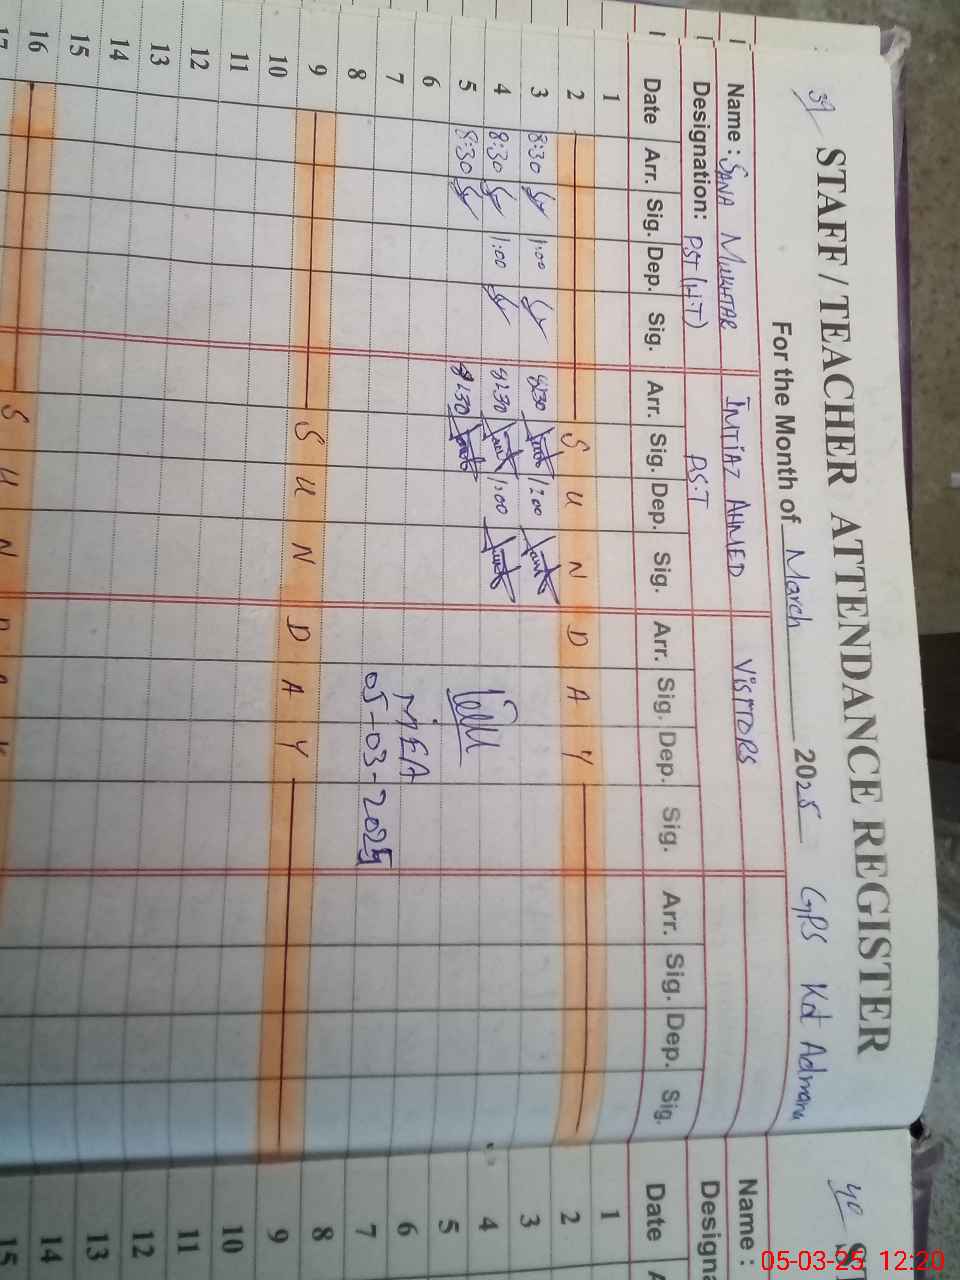 39
STAFF / TEACHER ATTENDANCE REGISTER
For the Month of March 2025 GPS Kot Admana
Name : SANA MUKHTAR IMTIAZ AHMED VISITORS
Designation: PST (H.T) P.S.T
Date Arr. Sig. Dep. Sig. Arr. Sig. Dep. Sig. Arr. Sig. Dep. Sig. Arr. Sig. Dep. Sig.
1
2 SUNDAY
3 8:30 1:00 8:30 1:00
4 8:30 1:00 8:30 1:00
5 8:30 8:30
6
7 MEA
8 05-03-2025
9 SUNDAY
10
11
12
13
14
15
16 SUNDAY
17
40
Name :
Date
1
2
3
4
5
6
7
8
9
10
11
12
13
14
15
05-03-25 12:20